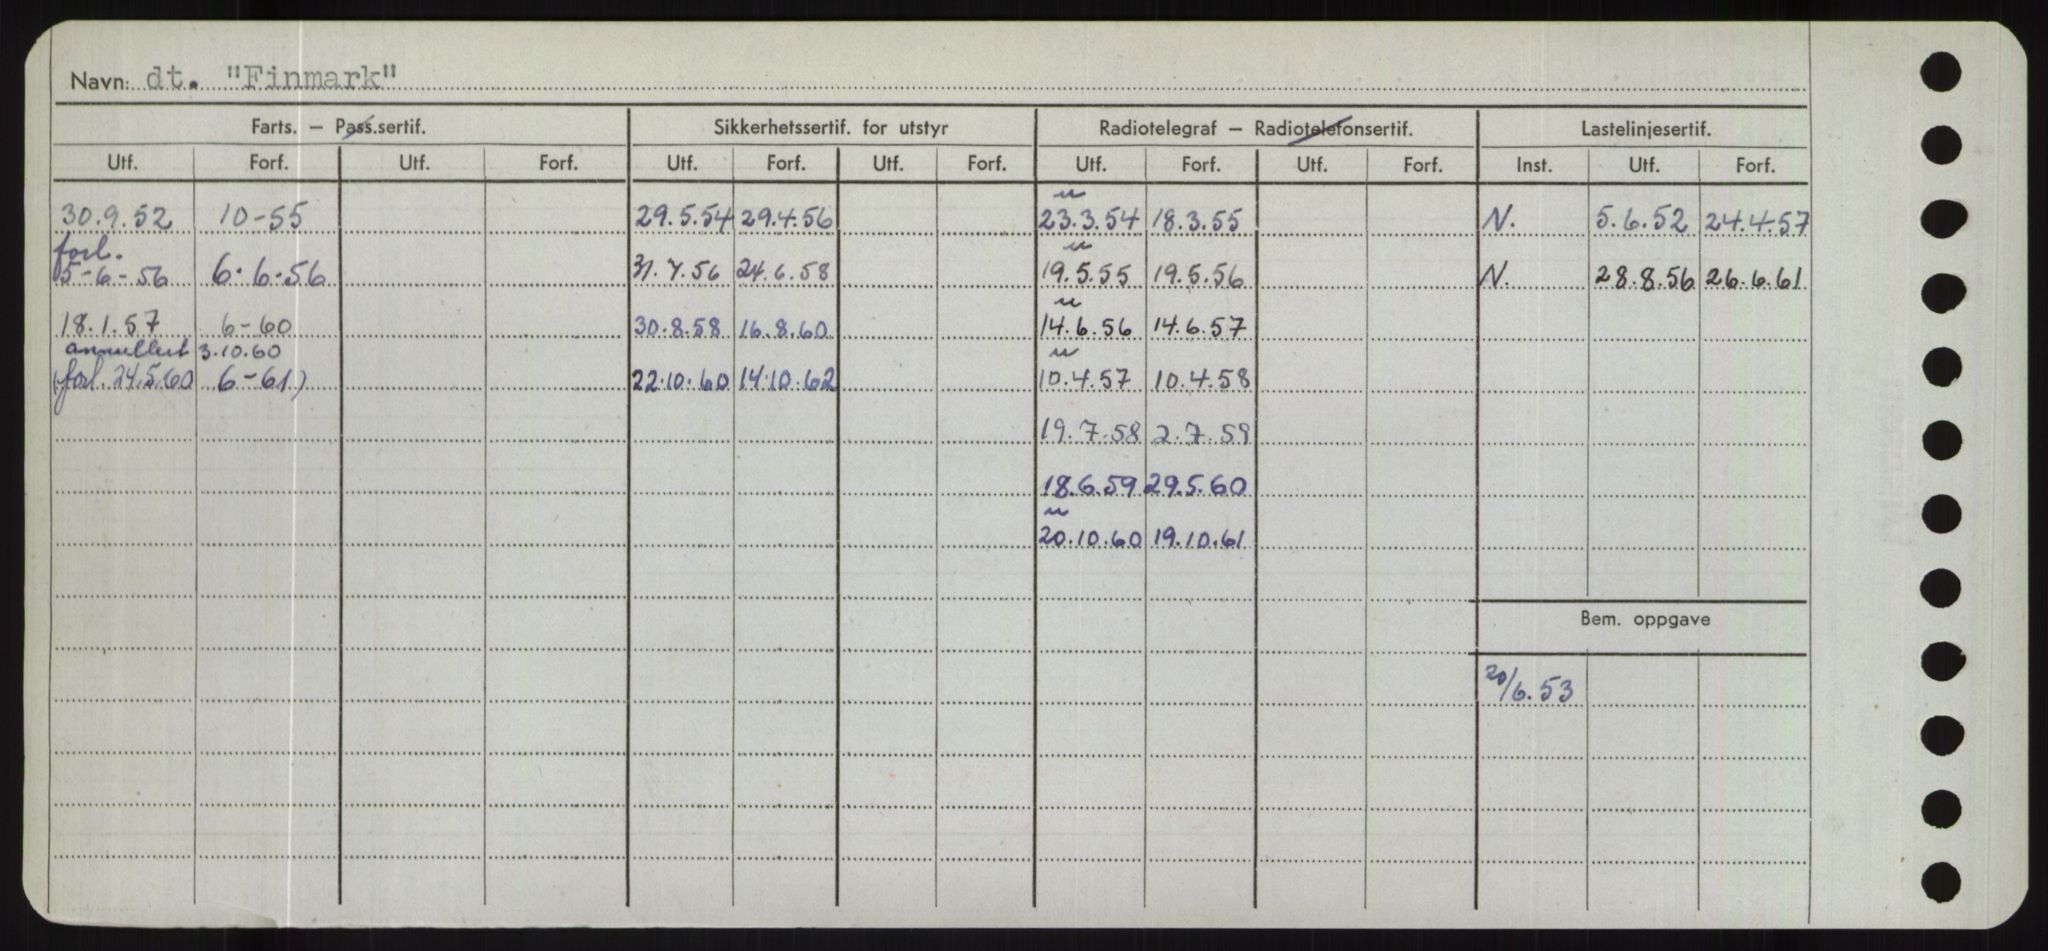 Navn: dt. "Finmark"
Farts. – Pass.sertif. Sikkerhetssertif. for utstyr Radiotelegraf – Radiotelefonsertif. Lastelinjesertif.
Utf. Forf. Utf. Forf. Utf. Forf. Utf. Forf. Utf. Forf. Utf. Forf. Inst. Utf. Forf.
u
30.9.52 10-55 29.5.54 29.4.56 23.3.54 18.3.55 N. 5.6.52 24.4.57
forl. u
5-6-56 6.6.56 31.7.56 24.6.58 19.5.55 19.5.56 N. 28.8.56 26.6.61
u
18.1.57 6-60 30.8.58 16.8.60 14.6.56 14.6.57
annullert 3.10.60 u
(forl. 24.5.60 6-61) 22.10.60 14.10.62 10.4.57 10.4.58
19.7.58 2.7.59
18.6.59 29.5.60
u
20.10.60 19.10.61
Bem. oppgave
20/6.53